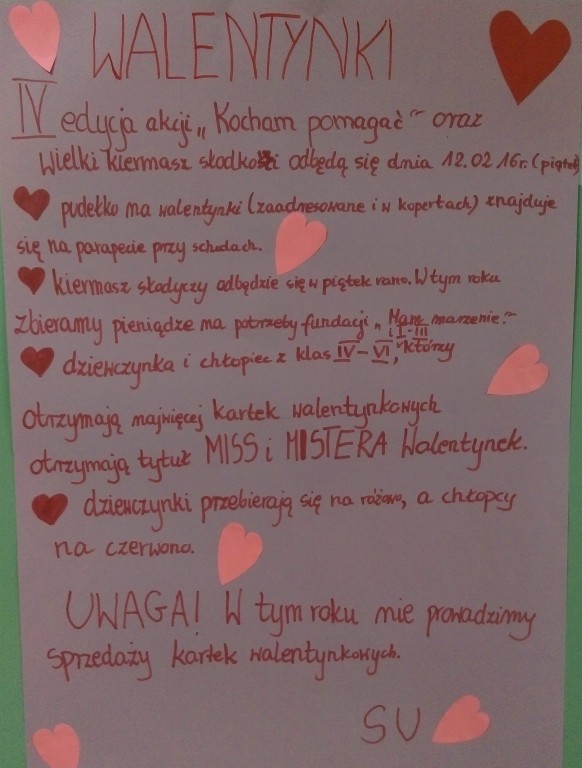 WALENTYNKI
IV edycja akcji „Kocham pomagać" oraz
Wielki kiermasz słodkości odbędą się dnia 12.02.16r. (piątek)
pudełko na walentynki (zaadresowane i w kopertach) znajduje
się na parapecie przy schodach.
kiermasz słodyczy odbędzie się w piątek rano. W tym roku
zbieramy pieniądze na potrzeby fundacji „Mam marzenie."
i I-III
dziewczynka i chłopiec z klas IV-VI, którzy
otrzymają najwięcej kartek walentynkowych
otrzymają tytuł MISS i MISTERA Walentynek.
dziewczynki przebierają się na różowo, a chłopcy
na czerwono.
UWAGA! W tym roku nie prowadzimy
sprzedaży kartek walentynkowych.
SU